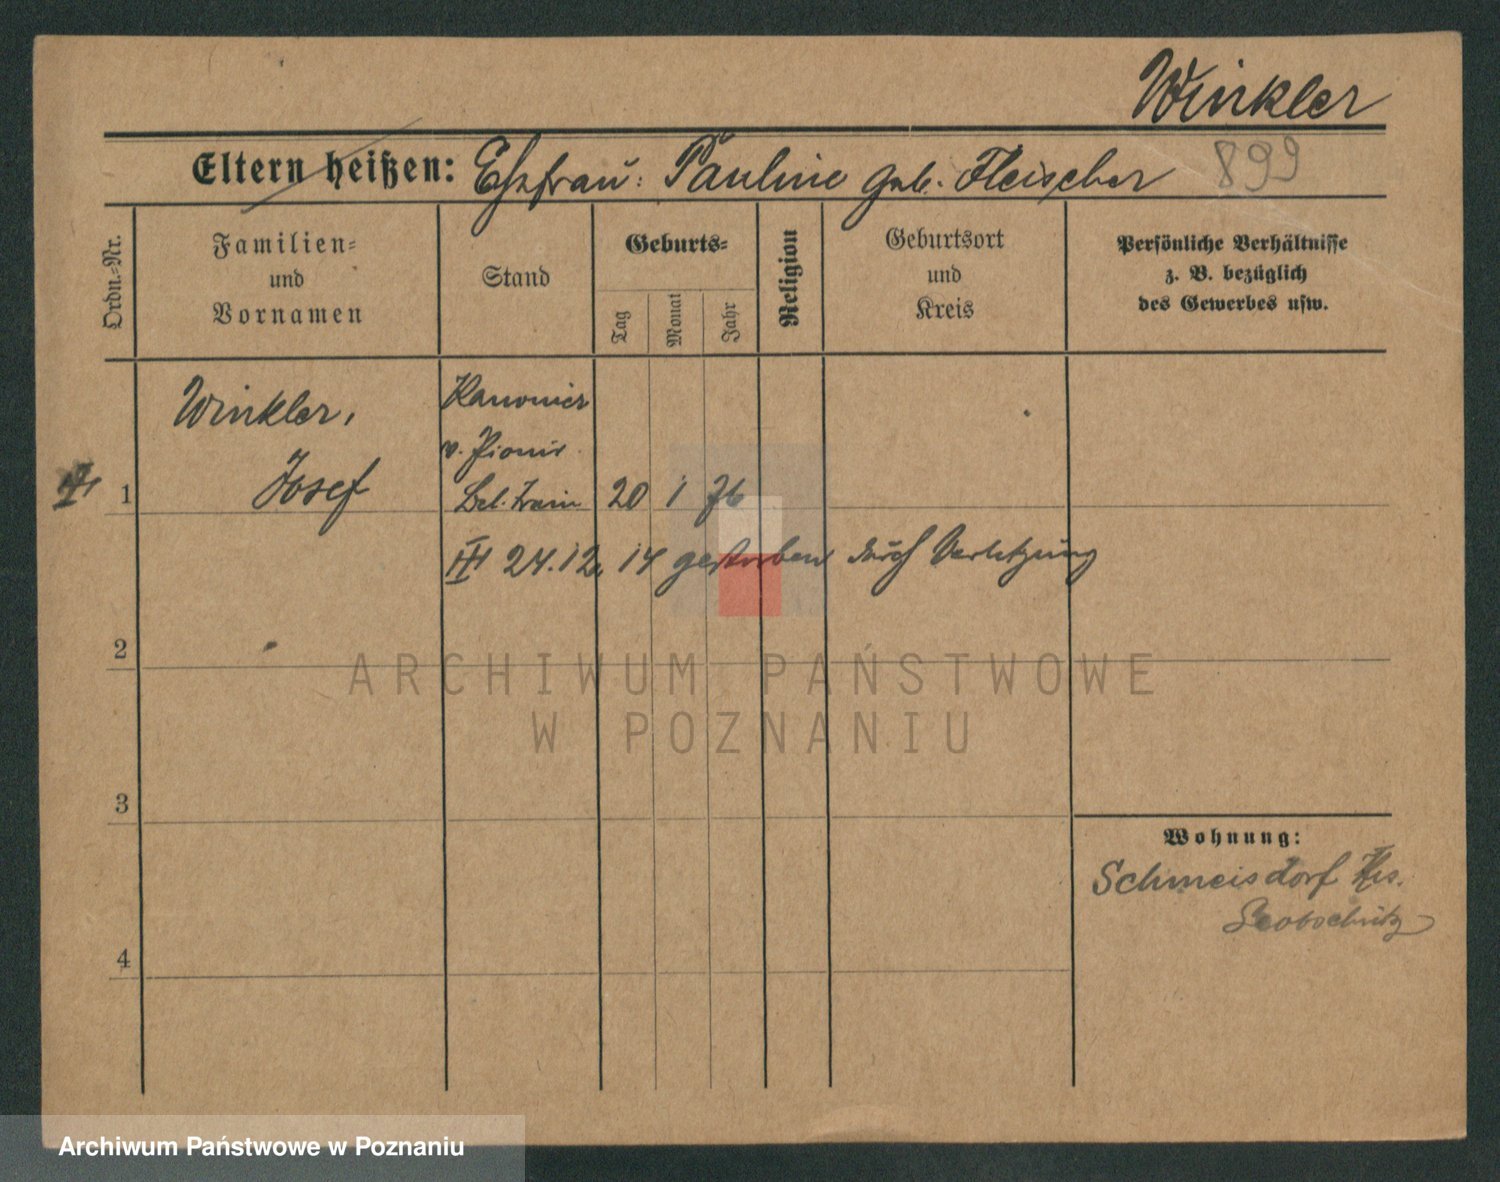 Winkler
Eltern heißen: Ehefrau: Pauline geb. Fleischer 899
Ordn.-Nr.
Familien-
und
Vornamen
Stand
Geburts-
Tag
Monat
Jahr
Religion
Geburtsort
und
Kreis
Persönliche Verhältnisse
z. B. bezüglich
des Gewerbes usw.
Winkler,
Josef
Kanonier
v. Pionir
Bel. Train
1
20 1 76
24.12.14 gestorben durch Verletzung
2
3
4
Wohnung:
Schmeisdorf Krs.
Leobschütz
ARCHIWUM PAŃSTWOWE
W POZNANIU
Archiwum Państwowe w Poznaniu